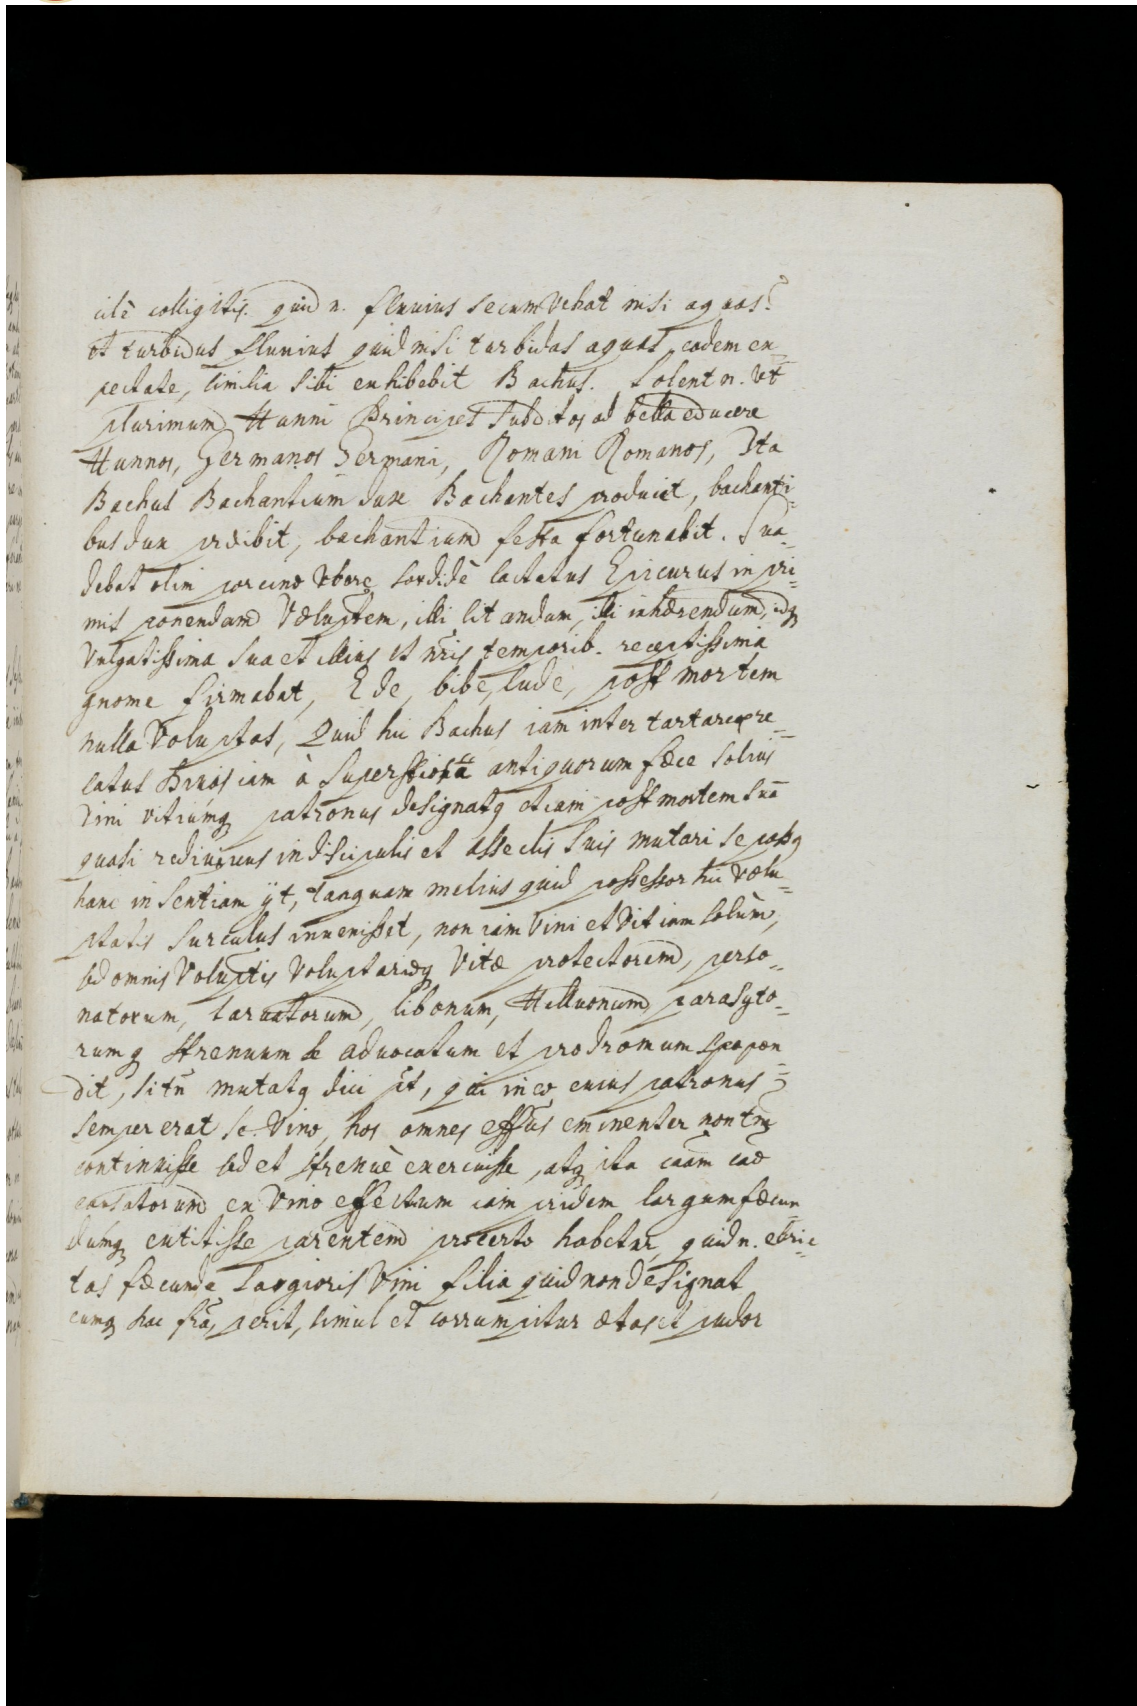 cilè colligitis. quid n. fluvius secum Vehat nisi aquas?
et turbidus fluvius quid nisi turbidas aquas, eodem ex-
pectate, similia sibi exhibebit Bachus. Solent n. Vt
plurimum Hunni Principes Subditos ad bella educere
Hunnos, Germanos Germani, Romani Romanos, Ita
Bachus Bachantium dux Bachantes producit, bachanti-
bus dux prӕibit, bachantium festa fortunabit. Sua-
debat olim porcino Vbere sordidè lactatus Epicurus in pri-
mis ponendam Vӕluptem, illi litandum, illi inhӕrendum, idq
Vulgatissima sua et illius et nris temporib. receptissima
gnome firmabat, Ede, bibe, lude, post mortem
nulla Voluptas, Quid hic Bachus iam inter tartareos re-
latus Divos iam à Superstiosa antiquorum fӕce solius
Vini vitiumq patronus designatq etiam post mortem suã
quasi redivivus in discipulis et asseclis suis mutari se
hanc in sentiam ÿt, tanquam melius quid possessor hic Vӕlu-
ptatis surculus invenisset, non iam Vini et Vitium solùm,
sed omnis Voluptis Voluptariӕq Vitӕ protectorem, perso-
natorum, larvatorum, libonum, Helluonum parasyto-
rumq strenuum se advocatum et prodromum spopon
dit, si tñ mutatq dici pt, qui in eo, cuius patronus
semper erat sc. Vino, hos omnes effus eminenter non tm
continuisse sed et strenuè exercuisse, atq ita caam
causatorum ex Vino effectum iam pridem largum fӕcun
dumq extitisse parentem pro certo habetur, quid n. ebrie-
tas fӕcunda largioris Vini filia quid non designat
cumq hac perit, simul et corrumpitur ӕtas et pudor